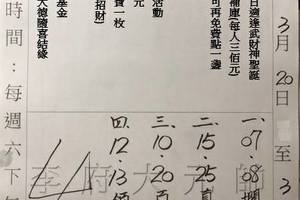 3月20日至3
日適逢武財神聖誕
補庫(每人三佰元)
可再免費點一盞
活動
元
費一枚
招財)
基金
大德隨喜結緣
時間:每週六下
一、07 08
二、15、25
三、10、20 百
四、12、13
李府大元帥